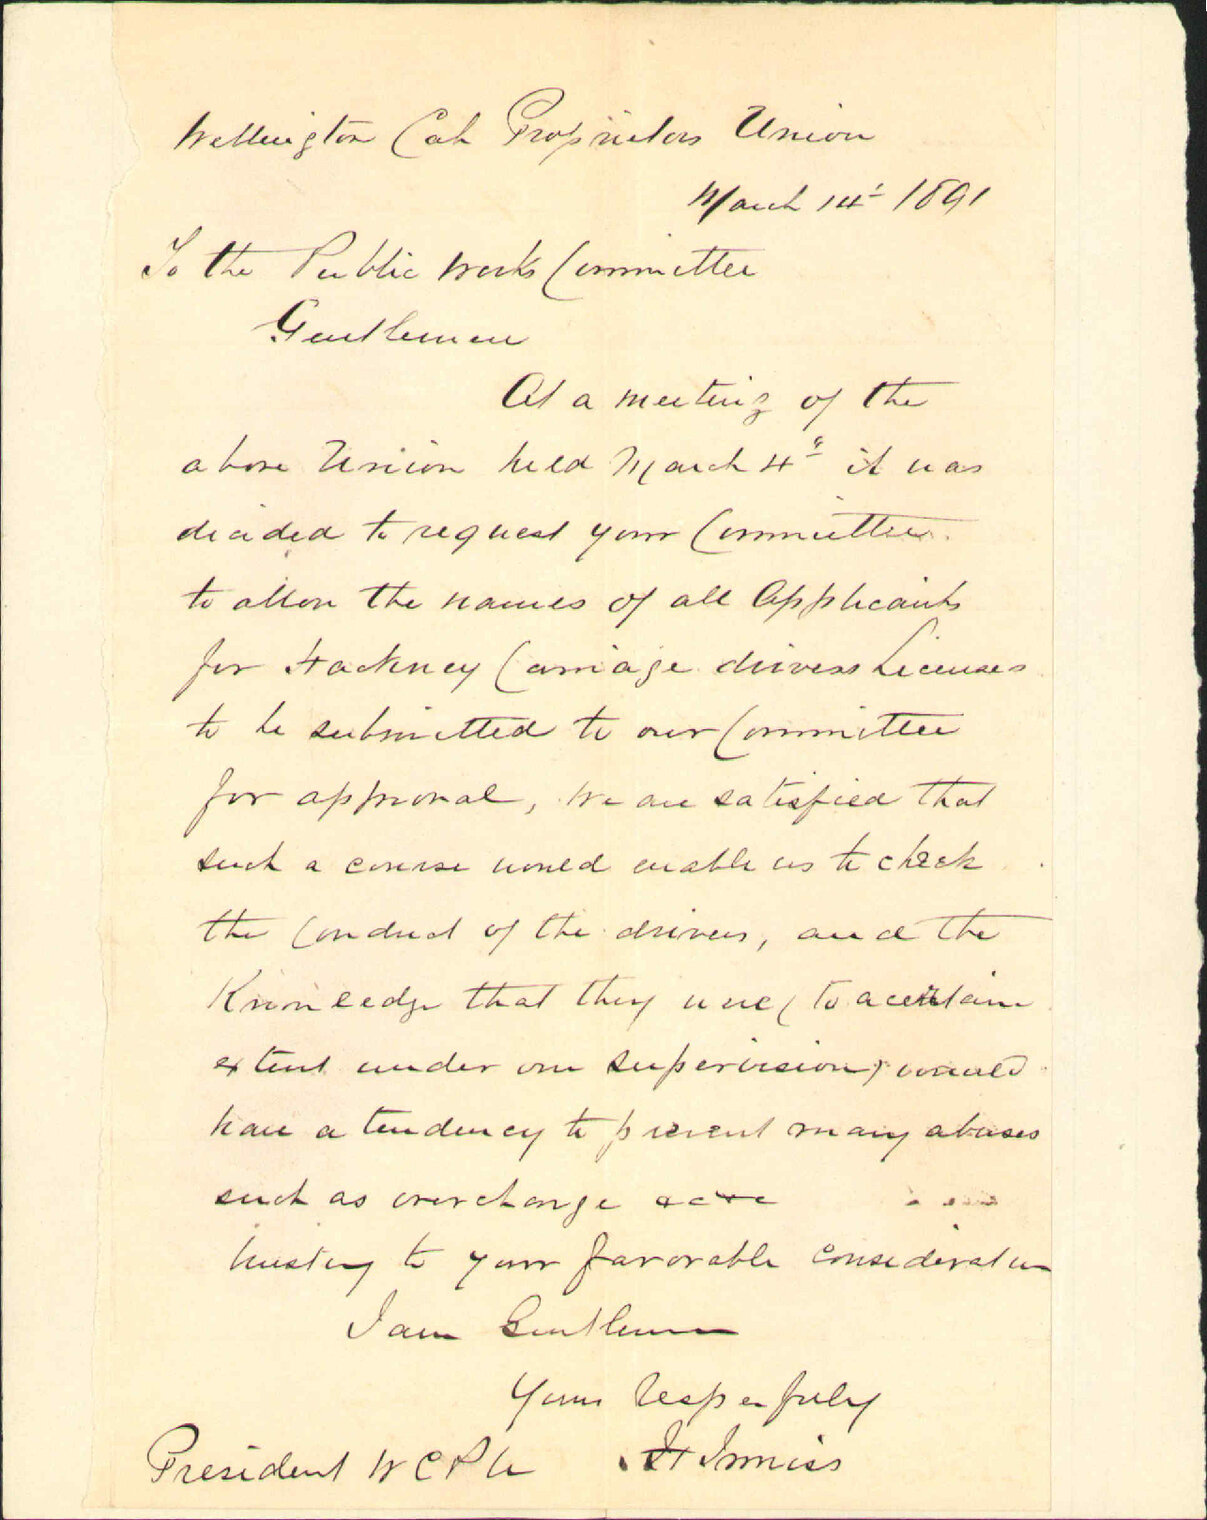 Wellington Cab Proprietors Union
March 14th 1891
To the Public Works Committee
Gentlemen
At a meeting of the
above Union held March 4th it was
decided to request your Committee
to allow the names of all Applicants
for Hackney Carriage drivers Licenses
to be submitted to our Committee
for approval, We are satisfied that
such a course would enable us to check
the Conduct of the drivers, and the
Knowledge that they were (to a certain
extent under our supervision) would
have a tendency to prevent many abuses
such as overcharge &c &c
trusting to your favorable consideration
I am Gentlemen
Yours Respectfully
H Inniss
President W C P U